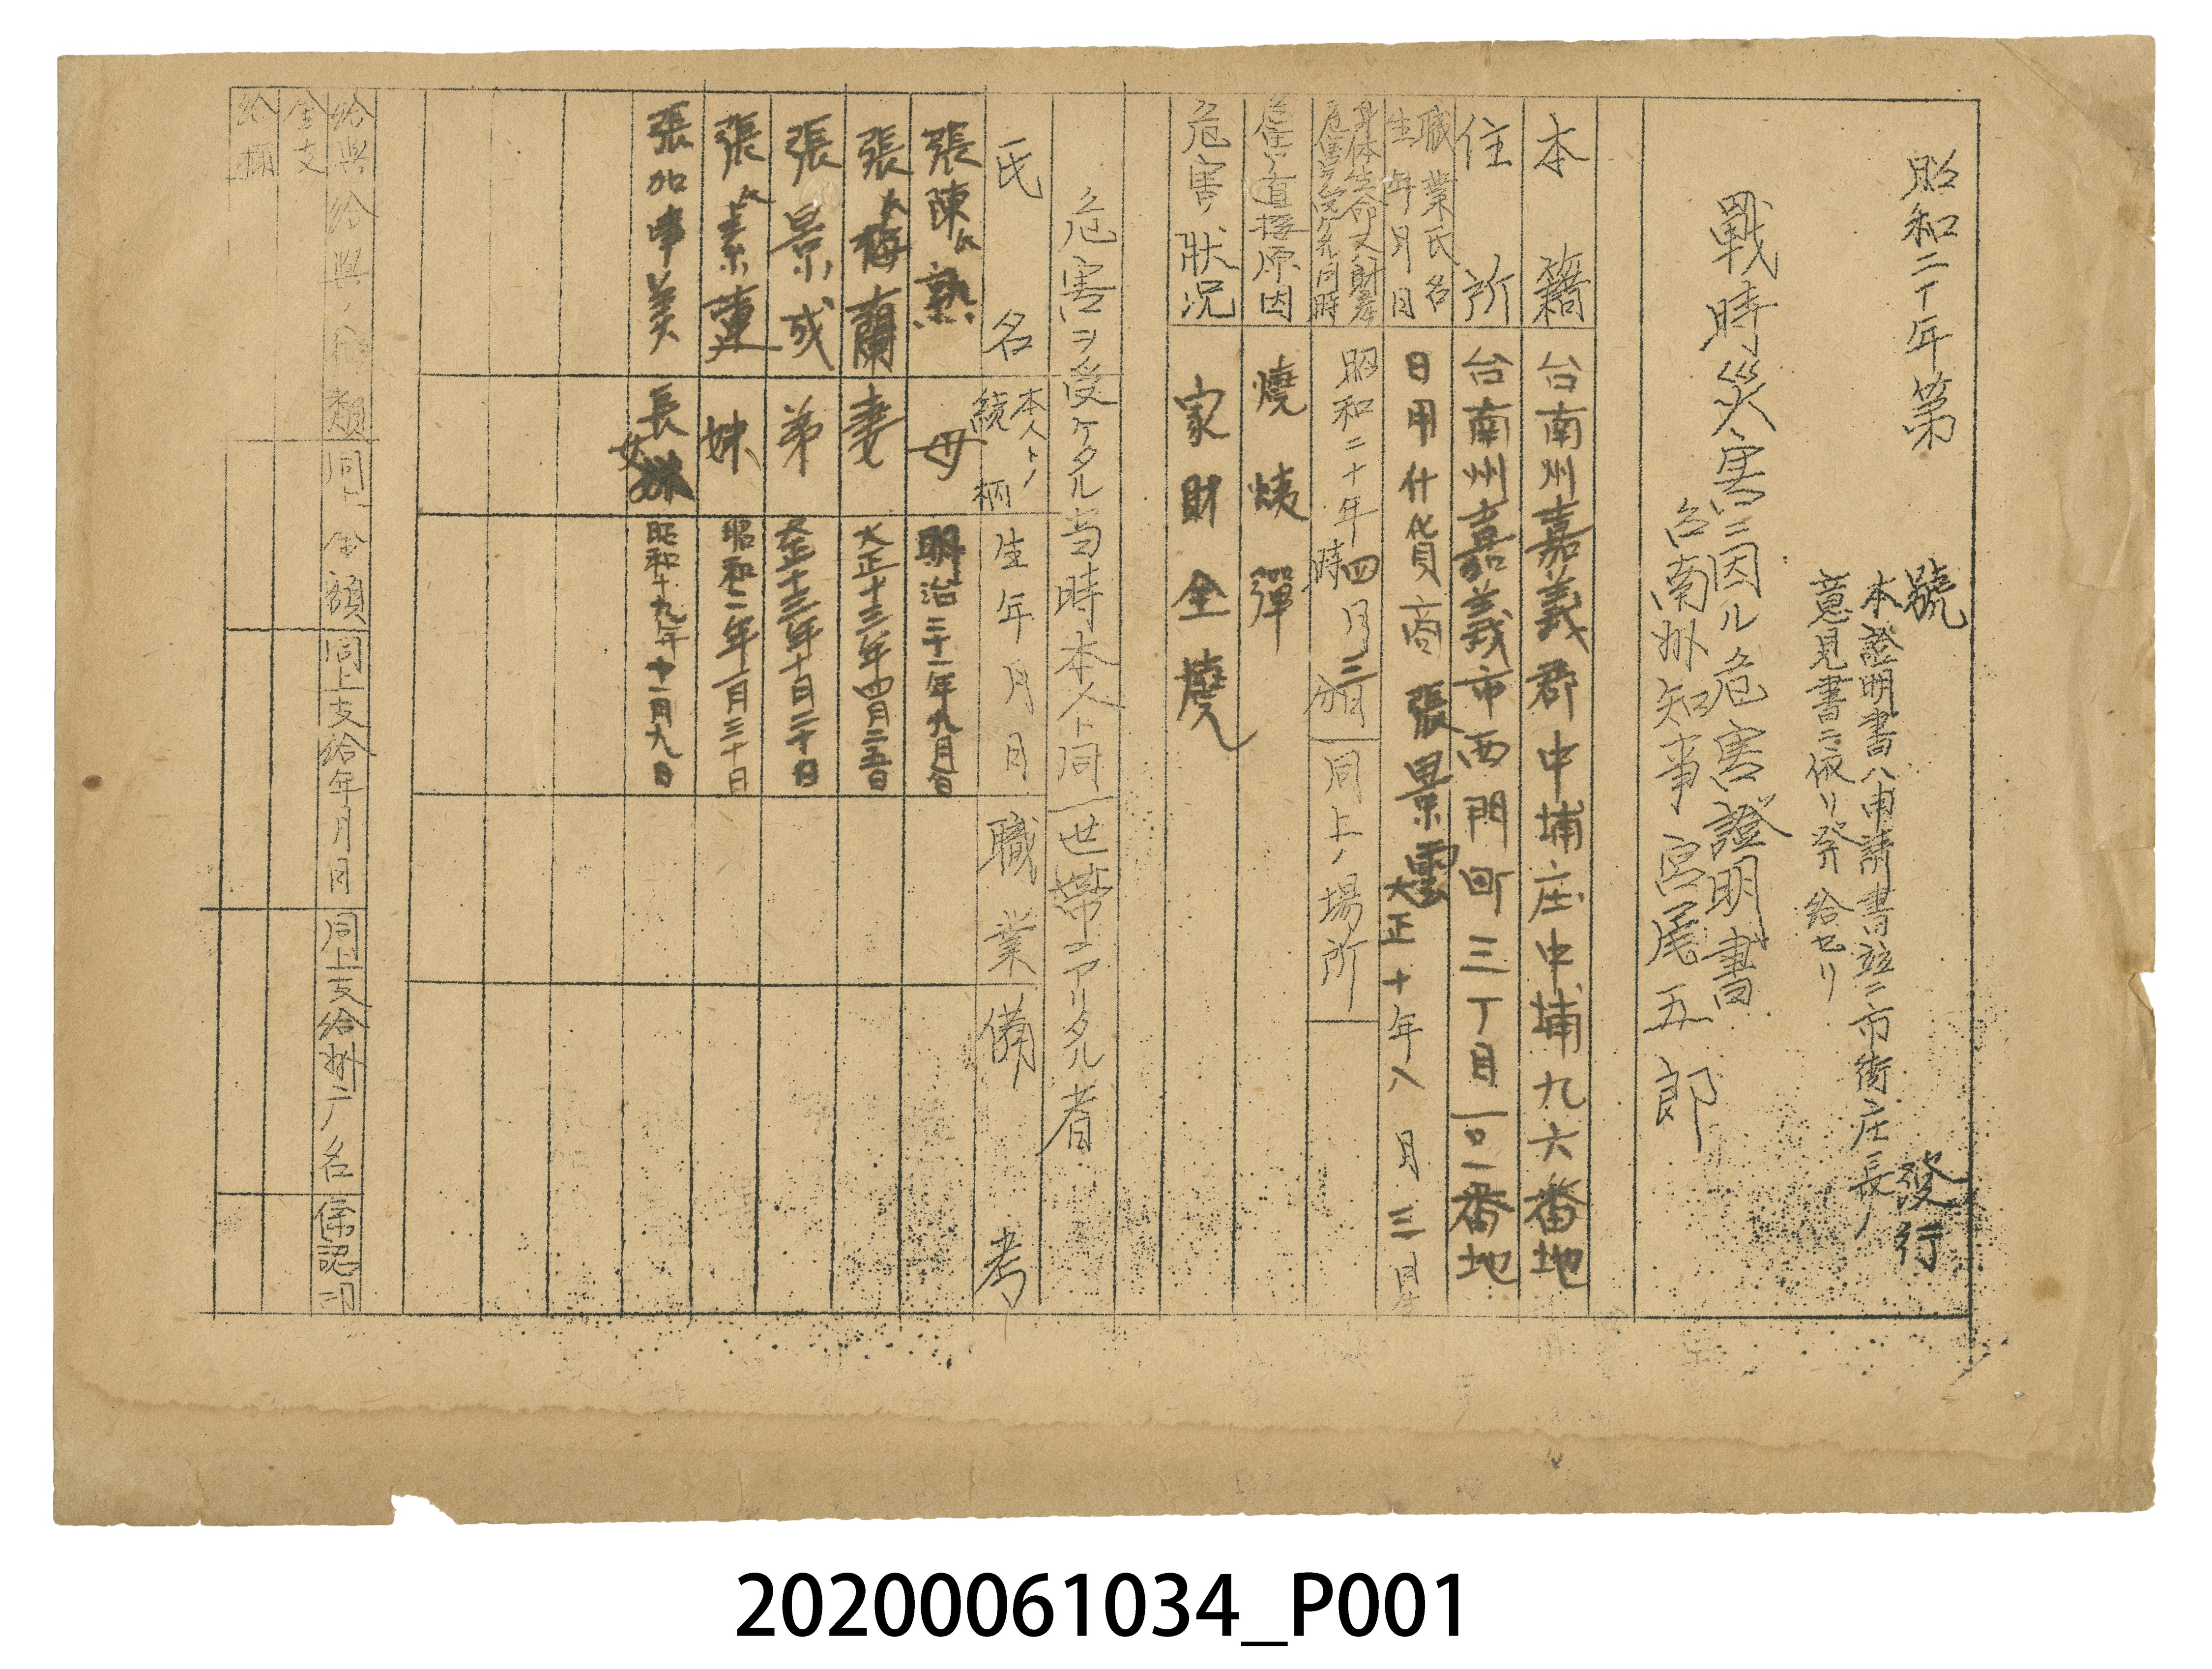 昭和二十年第　　號　　發行
本證明書ハ申請書竝ニ市街庄長ノ
意見書ニ依リ発給セリ
戰時災害ニ因ル危害證明書
台南州知事宮尾五郎
本籍　台南州嘉義郡中埔庄中埔九六番地
住所　台南州嘉義市西門町三丁目一〇二番地
職業氏名
生年月日
日用什貨商　張景雲　大正十年八月三日生
身体生命又ハ財産
危害ヲ受ケタル同時
昭和二十年四月三日
時　分
同上ノ場所
危害ノ直接原因　燒夷彈
危害ノ狀況　家財全燒
危害ヲ受ケタル当時本人ト同一世帯ニアリタル者
氏名　本人トノ續柄　生年月日　職業　備考
張陳氏熟　母　明治三十一年九月
張氏梅蘭　妻　大正十三年四月二五日
張景成　弟　大正十三年十月二十日
張氏素蓮　妹　昭和二年一月三十日
張加津美　長女　昭和十九年十一月九日
給與給與ノ種類　同上金額　同上支給年月日　同上支給州廳名　係認印
金支
給欄
20200061034_P001